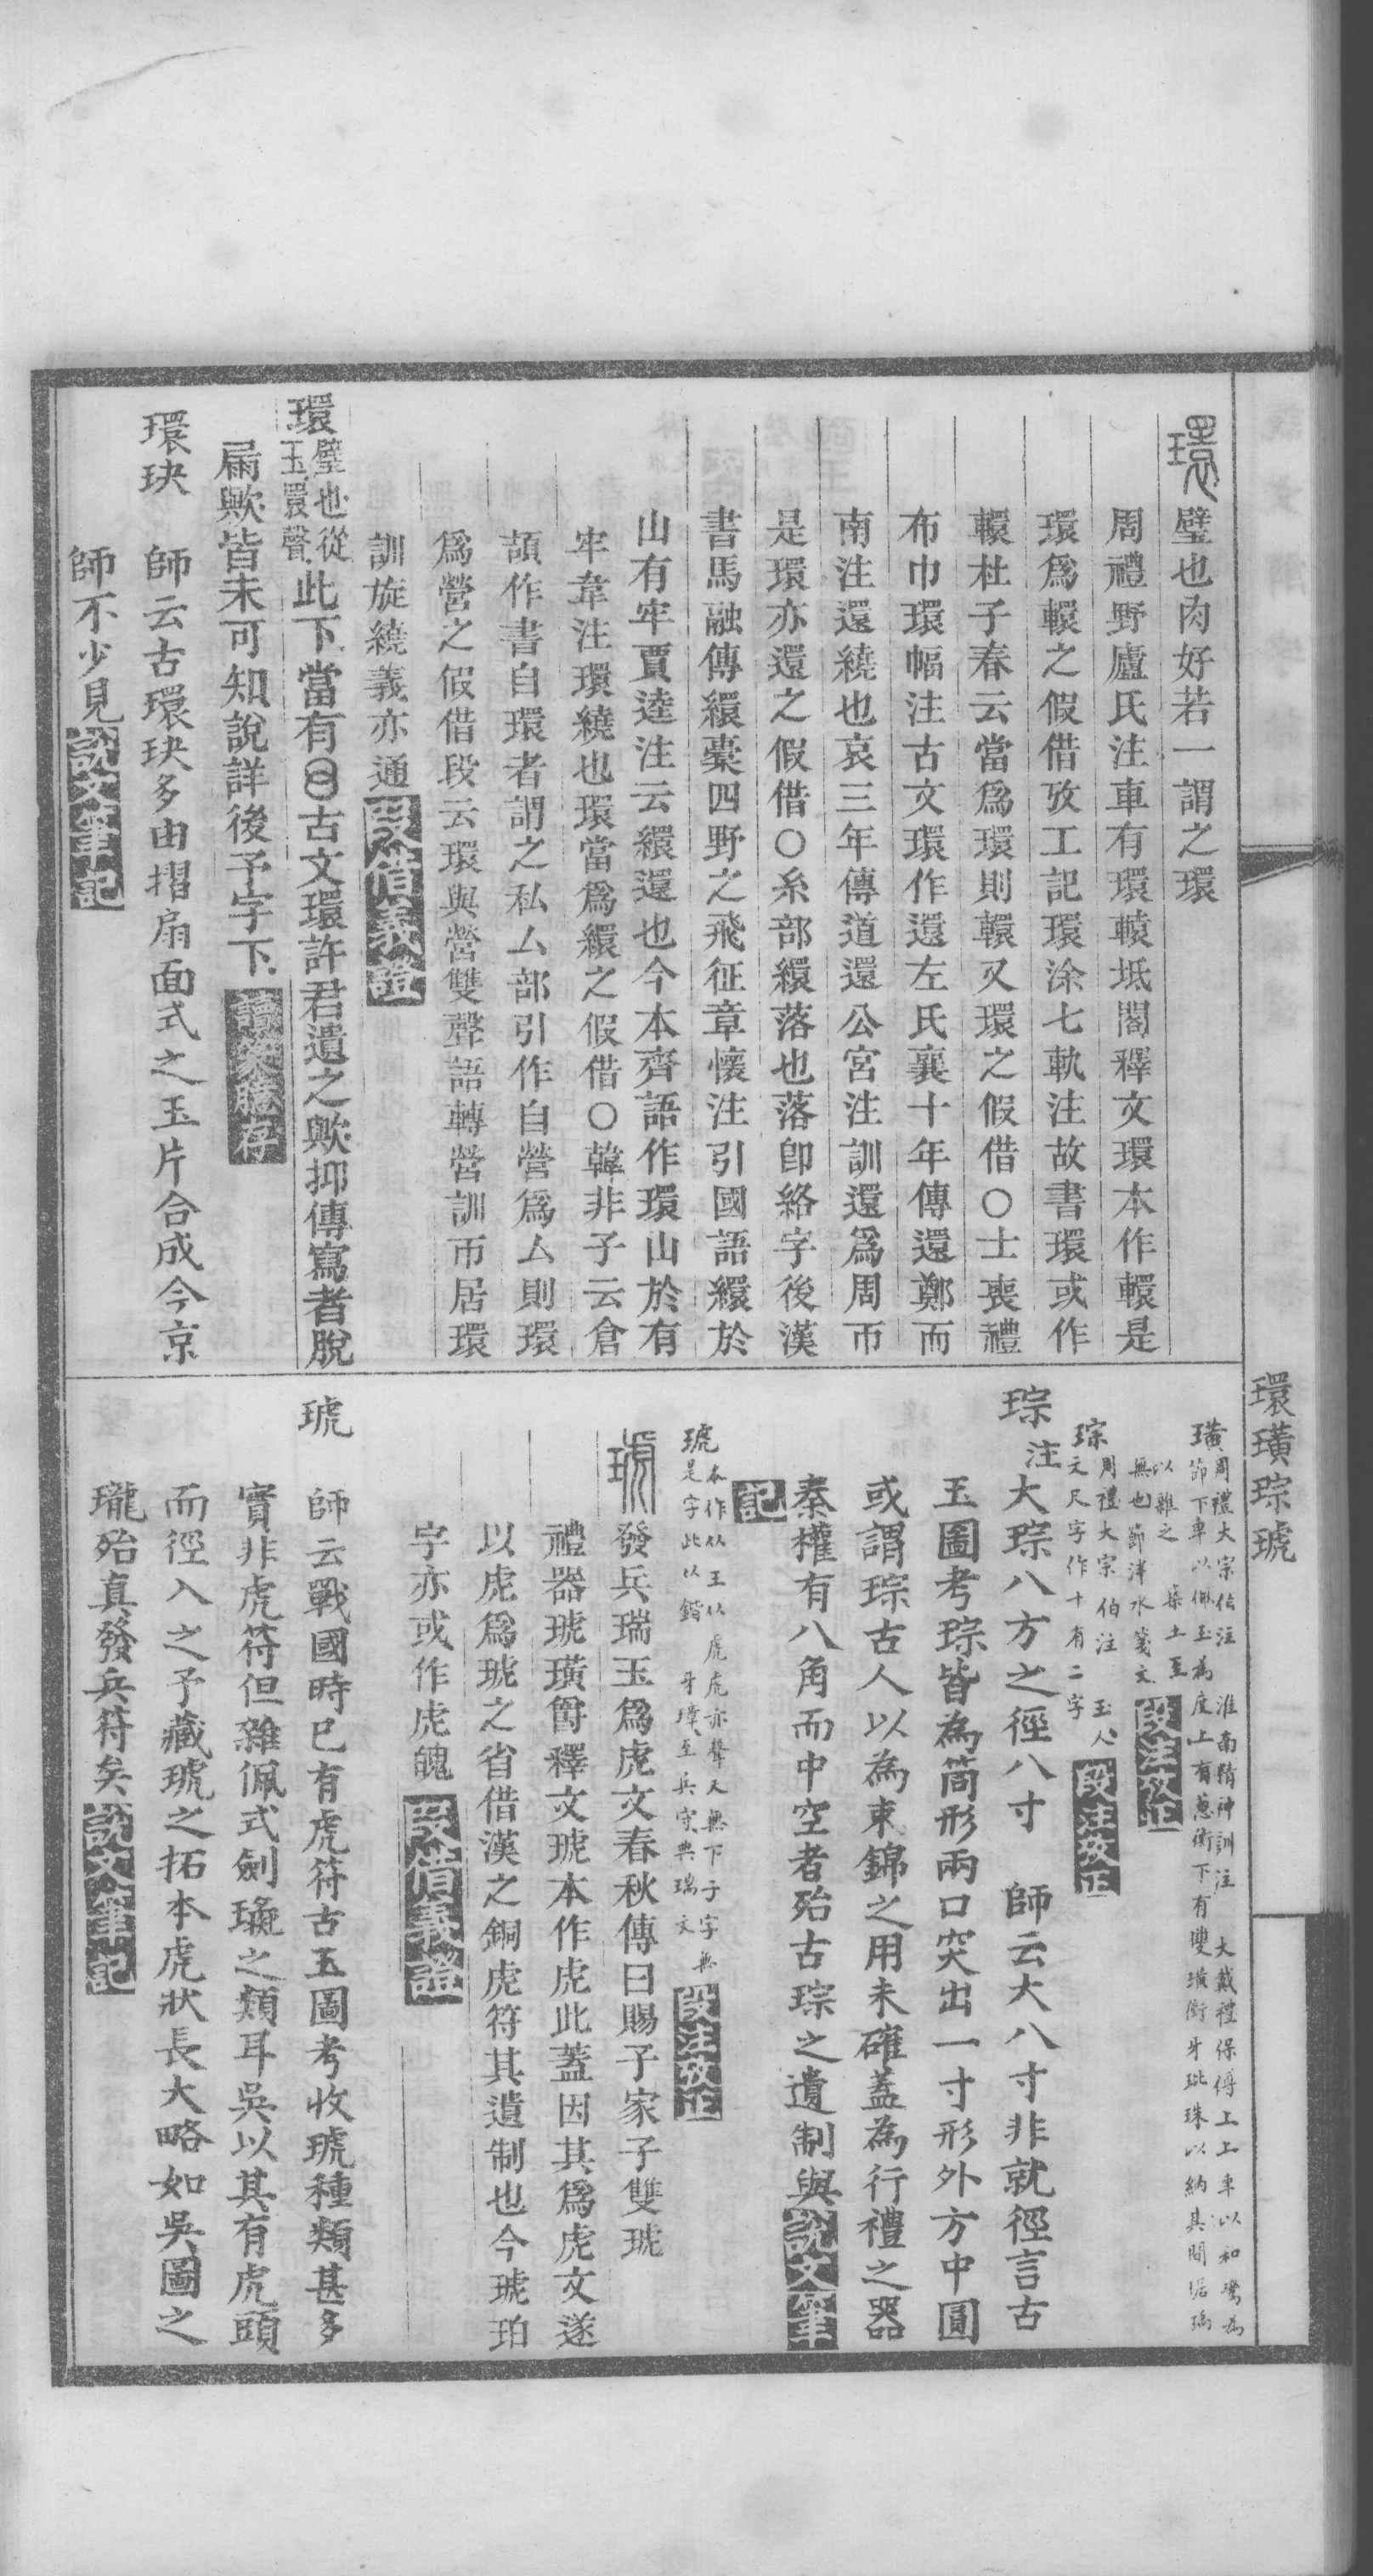 環璜琮琥
環 璧也肉好若一謂之環
周禮野廬氏注車有環轅坻閣釋文環本作轘是
環爲轘之假借攷工記環涂七軌注故書環或作
轘杜子春云當爲環則轘又環之假借○士喪禮
布巾環幅注古文環作還左氏襄十年傳還鄭而
南注還繞也哀三年傳道還公宮注訓還爲周帀
是環亦還之假借○糸部繯落也落卽絡字後漢
書馬融傳繯橐四野之飛征章懷注引國語繯於
山有牢賈逵注云繯還也今本齊語作環山於有
牢韋注環繞也環當爲繯之假借○韓非子云倉
頡作書自環者謂之私厶部引作自營爲厶則環
爲營之假借段云環與營雙聲語轉營訓帀居環
訓旋繞義亦通 叚借義證
環 璧也從
玉睘聲 此下當有古文環許君遺之歟抑傳寫者脫
屚歟皆未可知說詳後予字下 讀段臆存
環玦 師云古環玦多由摺扇面式之玉片合成今京
師不少見 說文筆記
璜 周禮大宗伯注 淮南精神訓注 大戴禮保傅上上車以和鸞爲
節下車以佩玉爲度上有蔥衡下有雙璜衝牙玭珠以納其閒琚瑀
以雜之 築土至
無也 節泮水箋文 段注攷正
琮 周禮大宗伯注 玉人
文尺字作十有二字 段注攷正
琮 注大琮八方之徑八寸 師云大八寸非就徑言古
玉圖考琮皆為筒形兩口突出一寸形外方中圓
或謂琮古人以為束錦之用未確蓋為行禮之器
秦權有八角而中空者殆古琮之遺制與 說文筆
記
琥 本作从王从虎虎亦聲又無下子字無
是字此以鍇 牙璋至兵守典瑞文 段注攷正
琥 發兵瑞玉爲虎文春秋傳曰賜子家子雙琥
禮器琥璜爵釋文琥本作虎此蓋因其爲虎文遂
以虎爲琥之省借漢之銅虎符其遺制也今琥珀
字亦或作虎魄 叚借義證
琥 師云戰國時已有虎符古玉圖考收琥種類甚多
實非虎符但雜佩式劍璏之類耳吳以其有虎頭
而徑入之予藏琥之拓本虎狀長大略如吳圖之
瓏殆真發兵符矣 說文筆記